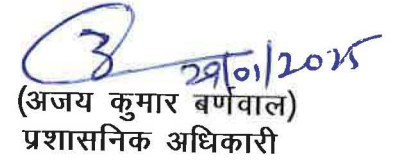 29/01/2025
(अजय कुमार बर्णवाल)
प्रशासनिक अधिकारी